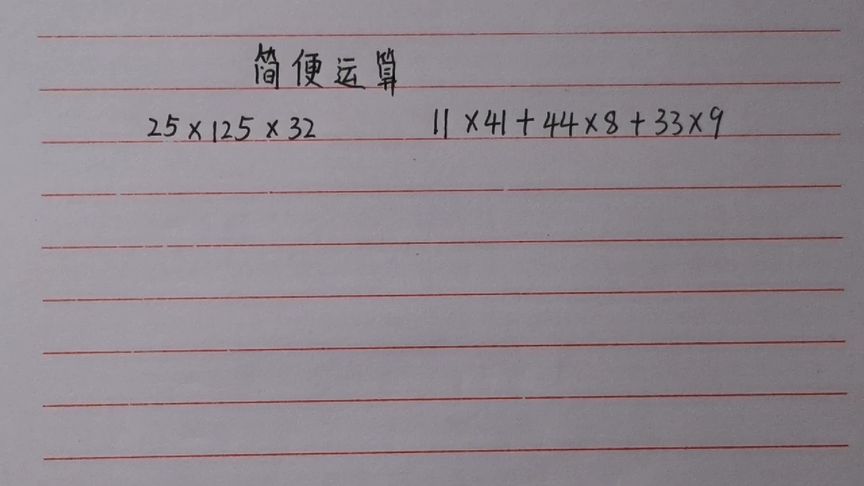 简便运算
25×125×32 11×41+44×8+33×9